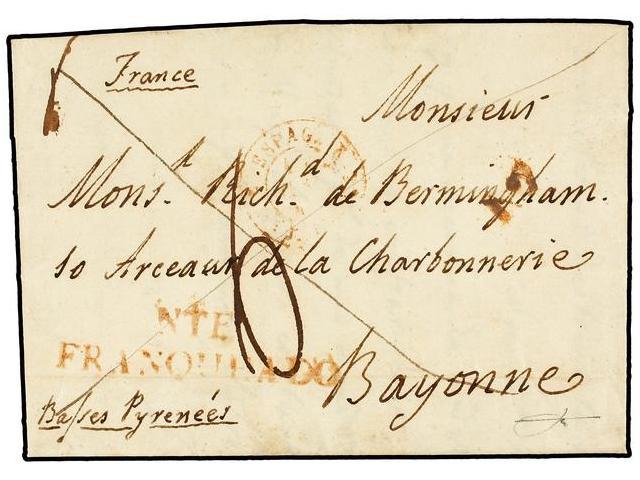 France
Monsieur
Mons.r Rich.d de Bermingham.
10 Arceaux de la Charbonnerie
Bayonne
Basses Pyreneés
6
ESPAG
NTE
FRANQUEADO